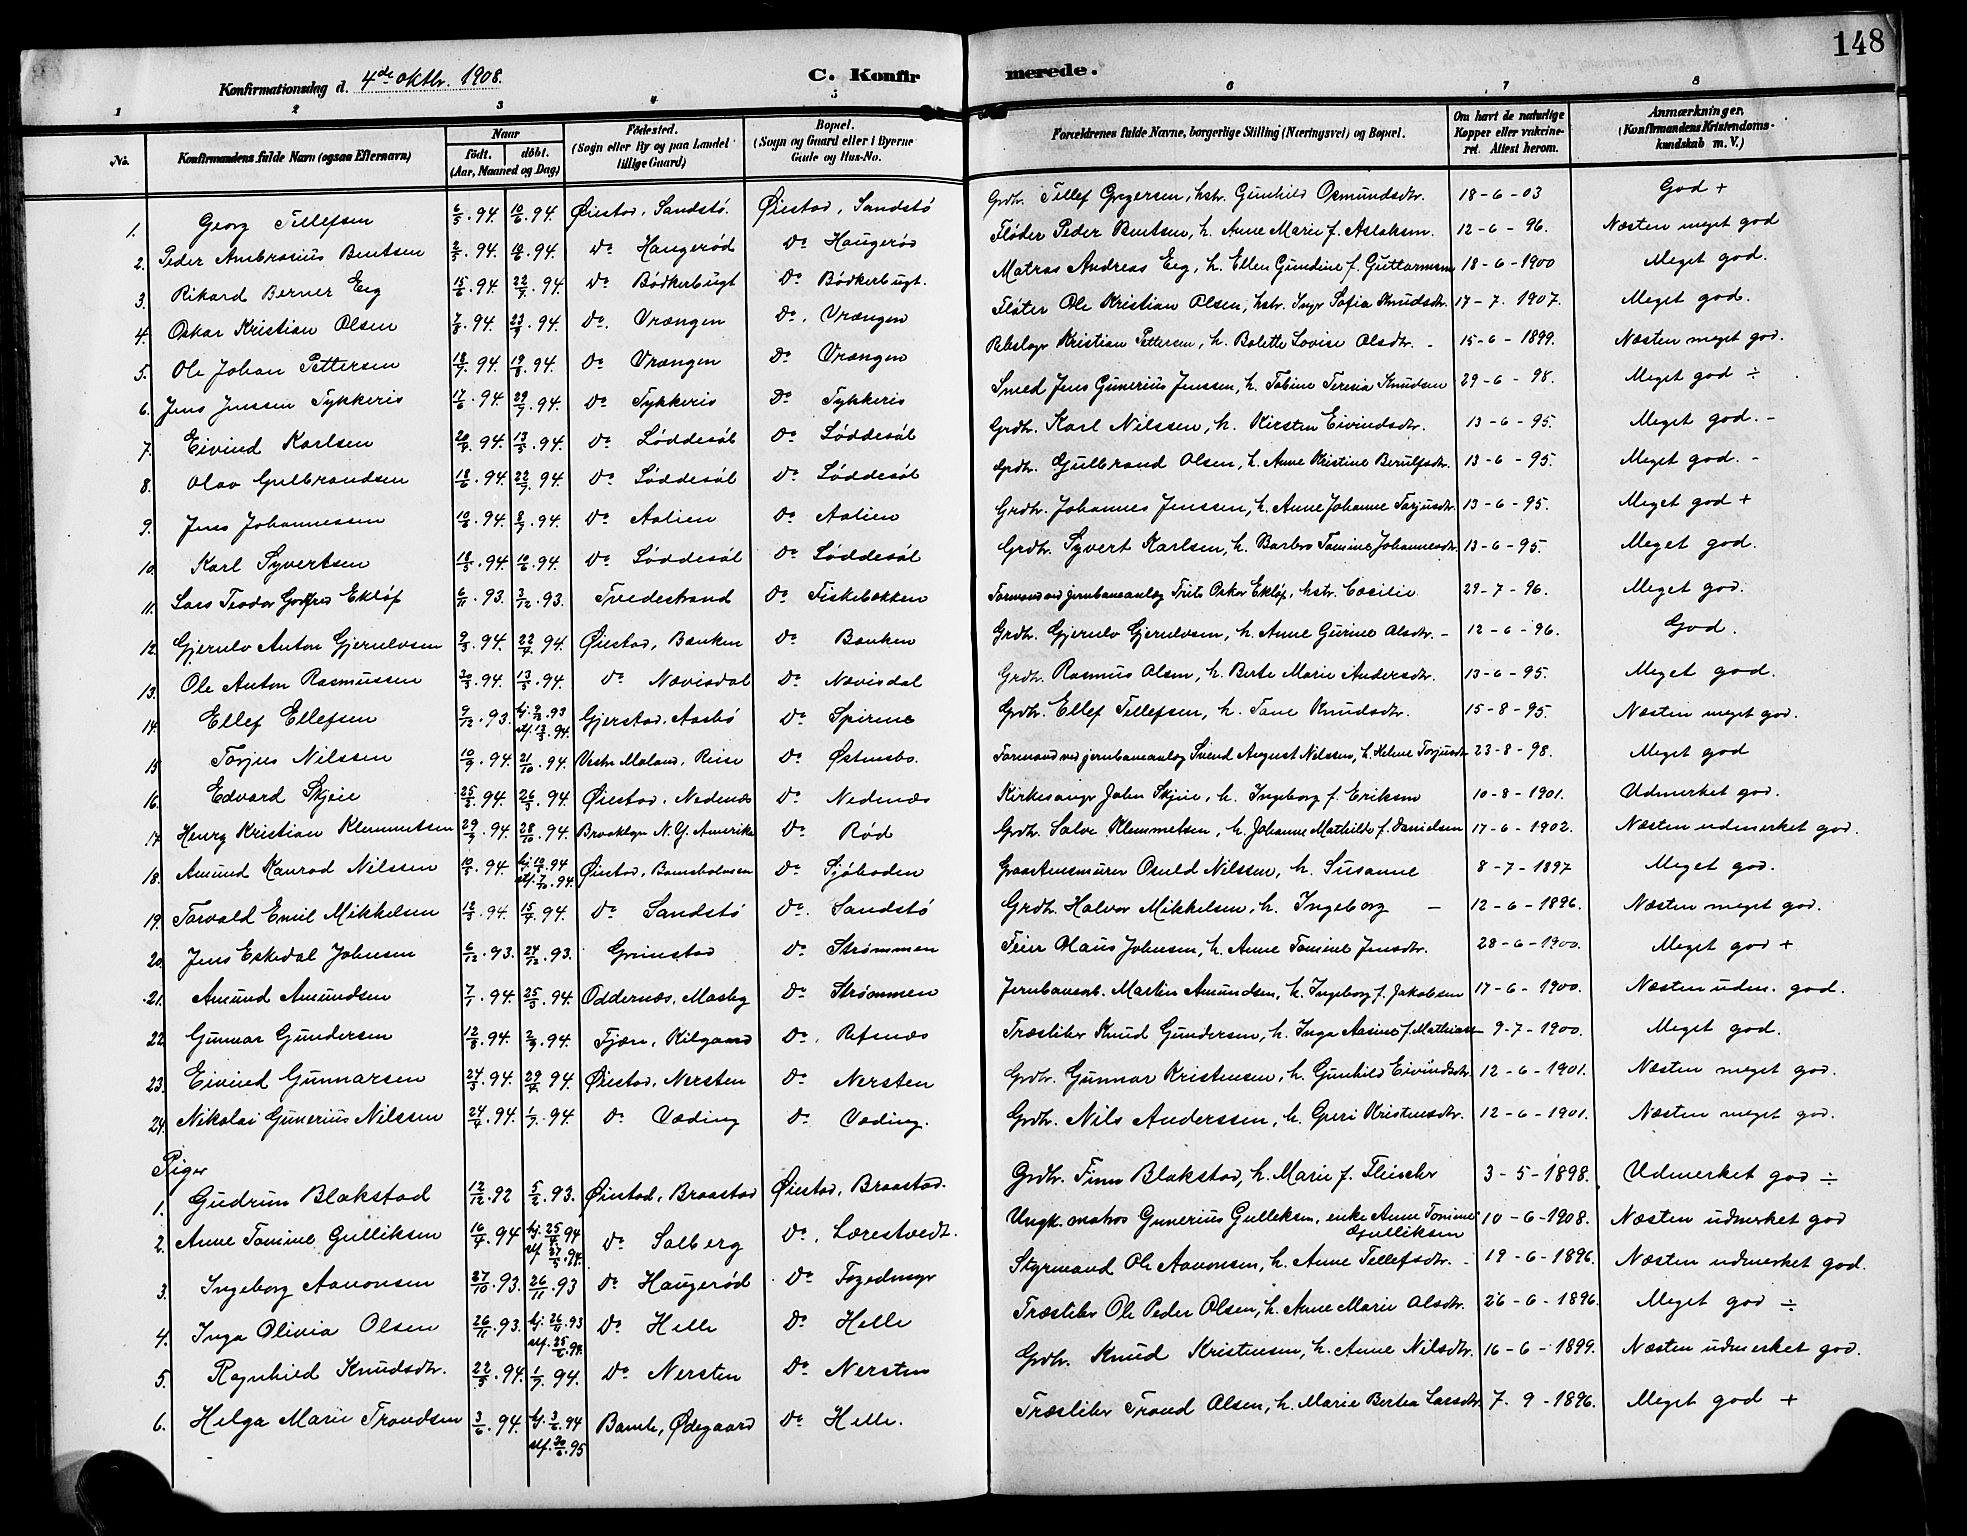 148
Konfirmationsdag d. 4de oktbr. 1908. C. Konfirmerede.
1 2 3 4 5 6 7 8
No. Konfirmandens fulde Navn (ogsaa Efternavn) Naar født. døbt. (Aar, Maaned og Dag) Fødested. (Sogn eller By og paa Landet tillige Gaard) Bopæl. (Sogn og Gaard eller i Byerne Gade og Hus-No. Forældrenes fulde Navne, borgerlige Stilling (Næringsvei) og Bopæl. Om havt de naturlige Kopper eller vakcineret. Attest herom. Anmærkninger, (Konfirmandens Kristendomskundskab m. V.)
1. Georg Tellefsen 6/5.94. 10/6.94. Øiestad, Sandstö. Øiestad, Sandstö Grdbr. Tellef Gregersen, hstr. Gunhild Osmundsdtr. 18-6-03 God +
2. Peder Ambrosius Bentsen 2/5.94. 10/6.94. Do Haugerød Do Haugerød Fløder Peder Bentsen, h. Anne Marie f. Aslaksen. 12-6-96. Næsten meget god
3. Rikard Berner Eeg 15/6.94. 22/7.94. Do Bödkerbugt Do Bödkerbugt. Matros Andreas Eeg, h. Ellen Gundine f. Guttormsen 18-6-1900 Meget god.
4. Oskar Kristian Olsen 7/8.94. 23/9.94. Do. Vrængen Do. Vrængen Fløter Ole Kristian Olsen, hstr. Inger Sofia Knudsdtr. 17-7.1907. Meget god.
5. Ole Johan Pettersen 18/7.94. 19/8.94. Do Vrængen Do Vrængen Rebslagr Kristian Pettersen, h. Bolette Lovise Olsdtr. - 15-6-1899. Næsten meget god.
6. Jens Jenssen Tykkeris 17/6.94. 29/7.94. Do Tykkeris Do Tykkeris Smed Jens Gunerius Jenssen, h. Tobine Teresia Knudsen 29-6-98. Meget god ÷
7. Eivind Karlsen 20/4.94. 13/5.94. Do Løddesøl Do Løddesøl Grdbr. Karl Nilssen, h. Kirsten Eivindsdtr. 13-6-95. Meget god. -
8. Olav Gulbrandsen 18/6.94. 22/7.94. Do Løddesøl Do Løddesøl Grdbr. Gulbrand Olsen, h. Anne Kristine Berulfsdtr. 13-6-95. Meget god. -
9. Jens Johannessen 10/6.94. 8/7.94. Do Aalien Do Aalien Grdbr. Johannes Jenssen, h. Anne Johanne Torjusdtr. 13-6-95. Meget god +
10. Karl Syvertsen 18/5.94. 10/6.94. Do Løddesøl Do Løddesøl Grdbr. Syvert Karlsen, h. Barbro Tomine Johannesdtr. 13-6-95. Meget god.
11. Lars Teodor Gotfred Ekløf 6/11.93. 3/12.93. Tvedestrand Do Fiskebækken Formand ved jernbaneanlæg Frits Oskar Ekløf, hstr. Cæcilie 29-7-96. Meget god.
12. Gjerulv Anton Gjerulvsen 9/3.94. 22/4.94. Øiestad, Bænken Do Bænken Grdbr. Gjerulv Gjerulvsen, h. Anne Gurine Olsdtr. - 12-6-96. God.
13. Ole Anton Rasmussen 30/3.94. 13/5.94. Do Nævisdal Do Nævisdal Grdbr. Rasmus Olsen, h. Berte Marie Andersdtr. 13-6-95. Meget god.
14. Ellef Ellefsen 9/12.93. hj. 9/12.93 stf. 12/3.94. Gjerstad, Aasbø Do Spirene Grdbr. Ellef Tellefsen, h. Tane Knudsdtr. 15-8-95. Næsten meget god.
15 Torjus Nilssen 10/9.94. 21/10.94. Vestre Moland, Reise Do Østensbo. Formand ved jernbaneanlæg Svend August Nilssen, h. Helene Torjusdtr 23-8-98. Meget god
16. Edvard Skjeie 25/3.94. 26/5.94. Øiestad, Nedenæs Do Nedenæs Kirkesangr John Skjeie, h. Ingeborg f. Eriksen 10-8-1901. Udmerket god.
17 Henry Kristian Klemmetsen 29/7.94. 28/10.94. Brooklyn N.Y. Amerika Do Rød Grdbr. Salve Klemmetsen, h. Johanne Mathilde f. Danielsen 17-6-1902. Næsten udmerket god.
18. Amund Konrad Nilssen 10/5.94. hj. 10/5.94 stf. 7/10.94. Øiestad, Bomsholmen Do Sjøboden Graastensmurer Osuld Nilssen, h. Susanne 8-7-1897 Meget god.
19. Torvald Emil Mikkelsen 12/3.94. 15/4.94. Do Sandstö Do. Sandstö Grdbr. Halvor Mikkelsen, h. Ingeborg - 12-6-1896. Næsten meget god.
20. Jens Eskedal Johnsen 6/12.93. 24/12.93. Grimstad Do Strømmen Feier Olaus Johnsen, h. Anne Tomine Jensdtr. 28-6-1900. Meget god +
21. Amund Amundsen 7/1.94. 25/3.94. Oddernæs, Mosby Do Strømmen Jernbanearb. Martin Amundsen, h. Ingeborg f. Jakobsen 17-6-1900. Næsten udm. god.
22. Gunnar Gundersen 12/8.94. 2/9.94. Fjære, Kilgaard Do. Refsnæs Træsliber Knud Gundersen, h. Inga Aasine f. Mathiass 9-7-1900. Meget god.
23. Eivind Gunnarsen 24/3.94. 29/4.94. Øiestad, Nersten Do Nersten Grdbr. Gunnar Kristensen, h. Gunhild Eivindsdtr. 12-6-1901. Næsten meget god.
24. Nikolai Gunerius Nilssen 24/4.94. 1/7.94. Do Væding Do Væding. Grdbr. Nils Anderssen, h. Guri Kristensdtr. 12-6-1901. Næsten meget god.
Piger
1. Gudrun Blakstad 12/12.92 5/2.93. Øiestad, Braastad Øiestad, Braastad. Grdbr. Finn Blakstad, h. Marie f. Fleischer 3-5-1898. Udmerket god ÷
2. Anne Tomine Gulliksen 16/4.94 hj. 25/4.94 stf. 27/5.94. Do Solberg Do. Lærestvedt. Ungk. matros Gunerius Gulleksen, enke Anne Tomine Gulliksen 10-6-1908. Næsten udmerket god
3. Ingeborg Aanonsen 27/10.93. 26/11.93 Do Haugerød Do Fogedmyr Styrmand Ole Aanonsen, h. Anne Tellefsdtr. 19-6-1896. Næsten udmerket god.
4. Inga Olivia Olsen 26/11.93. hj. 26/11.93 stf. 25/6.94. Do Helle Do Helle Træsliber Ole Peder Olsen, h. Anne Marie Olsdtr. 26-6-1896. Meget god ÷
5. Ragnhild Knudsdtr. 22/5.94. 1/7.94. Do Nersten Do Nersten Grdbr. Knud Kristensen, h. Anne Nilsdtr. 16-6-1899. Næsten udmerket god.
6. Helga Marie Trondsen 3/6.94. hj. 3/6.94 stf. 30/6.95 Bamle, Ødegaard Do Helle. Træsliber Trond Olsen, h. Marie Bertea Larsdtr. 7.9-1896. Meget god +